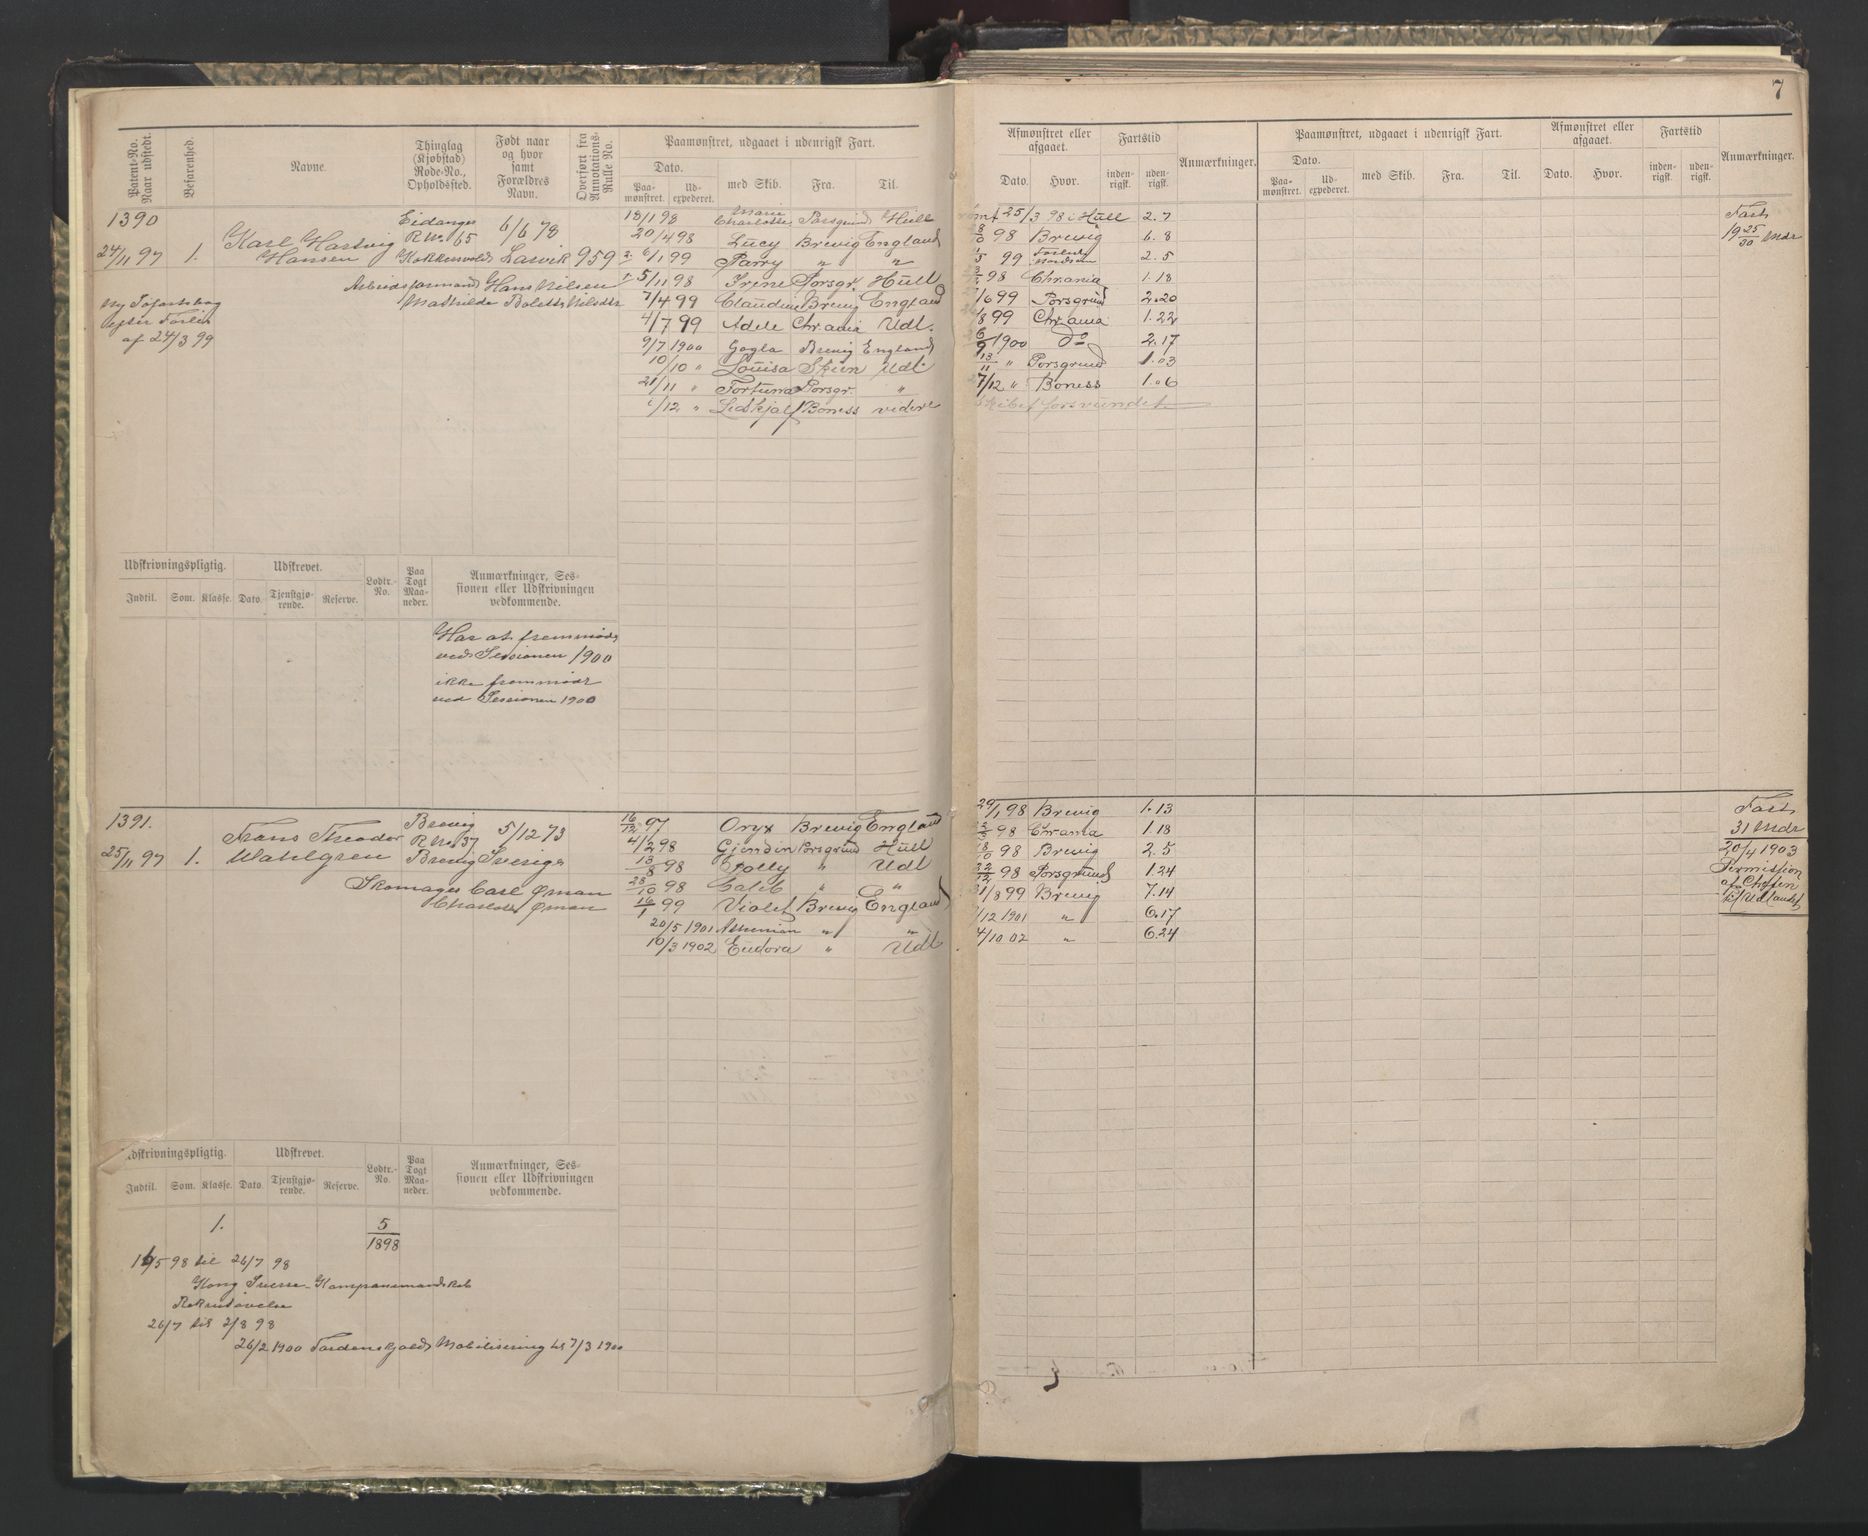 7
Patent-No. Naar udstedt.
Befarenhed.
Navne.
Thinglag (Kjøbstad) Rode-No., Opholdssted.
Født naar og hvor samt Forældres Navn.
Overført fra Annotations-Rulle No.
Paamønstret, udgaaet i udenrigsk Fart.
Dato.
Paa-mønstret.
Ud-expederet.
med Skib.
Fra.
Til.
Afmønstret eller afgaaet.
Dato.
Hvor.
Fartstid
inden-rigsk.
uden-rigsk.
Anmærkninger.
Paamønstret, udgaaet i udenrigsk Fart.
Dato.
Paa-mønstret.
Ud-expederet.
med Skib.
Fra.
Til.
Afmønstret eller afgaaet.
Dato.
Hvor.
Fartstid
inden-rigsk.
uden-rigsk.
Anmærkninger.
1390
24/11 97 1. Karl Hartvig Hansen
Eidanger R No. 65
6/6 78
Larvik 959
Arbeidsformand Hans Nilsen
Mathilde
Ny Søfartsbog
efter Forlis
af 24/3 99
18/1 98 Marie Charlotte Porsgrund Hull
20/4 98 Lucy Brevig England
6/1 99 Parry " "
5/11 98 Irene Porsgr. Hull
7/4 99 Claudine Brevig England
4/7 99 Adele Chrania Udl.
9/7 1900 Gogla Brevig England
10/10 " Louisa Skien Udl.
21/11 " Fortuna Porsgr. "
/12 " Lidskjalf Boness videre
rømt 25/3 98 i Hull 2.7
98 Brevig 6.8
99 2.5
98 Chrania 1.18
/6 99 Porsgrund 2.20
/8 99 Chrania 1.22
1900 do 2.17
13/11 " Porsgrund 1.03
7/12 " Boness 1.06
Skibet forsvundet
Fart
19 25/30 Mdr
Udskrivningspligtig.
Indtil.
Som.
Klasse.
Udskrevet.
Dato.
Tjenstgjø-rende.
Reserve.
Lodtr.-No.
Paa Togt Maa-neder.
Anmærkninger, Ses-
sionen eller Udskrivningen
vedkommende.
Har at fremmøde
ved Sessionen 1900
ikke fremmødt
ved Sessionen 1900
1391.
25/11 97 1. Frans Theodor Wahlgren
Brevig R No 37
Brevig
5/12 73
Sverige
Skomager Carl Øman
Charlotte Øman
16/12 97 Oryx Brevig England
4/2 98 Gjendin Porsgrund Hull
13/8 98 Polly " Udl
28/10 98 Caleb " "
16/1 99 Violet Brevig England
20/5 1901 Athenian " "
10/3 1902 Eudora " Udl
29/1 98 Brevig 1.13
98 Chrania 1.18
18/10 98 Brevig 2.5
22/12 98 Porsgrund 1.24
31/8 99 Brevig 7.14
/12 1901 " 6.17
4/10 02 " 6.24
Fart
31 Mdr
20/4 1903
Permission
af Chefen
til Udlandet
Udskrivningspligtig.
Indtil.
Som.
Klasse.
Udskrevet.
Dato.
Tjenstgjø-rende.
Reserve.
Lodtr.-No.
Paa Togt Maa-neder.
Anmærkninger, Ses-
sionen eller Udskrivningen
vedkommende.
1. 5/1898
16/5 98 til 26/7 98
Kong Sverre Kompanimandskab
Rekrutøvelse
26/7 til 2/8 98
26/2 1900 Tordenskjold Mobilisering til 7/3 1900